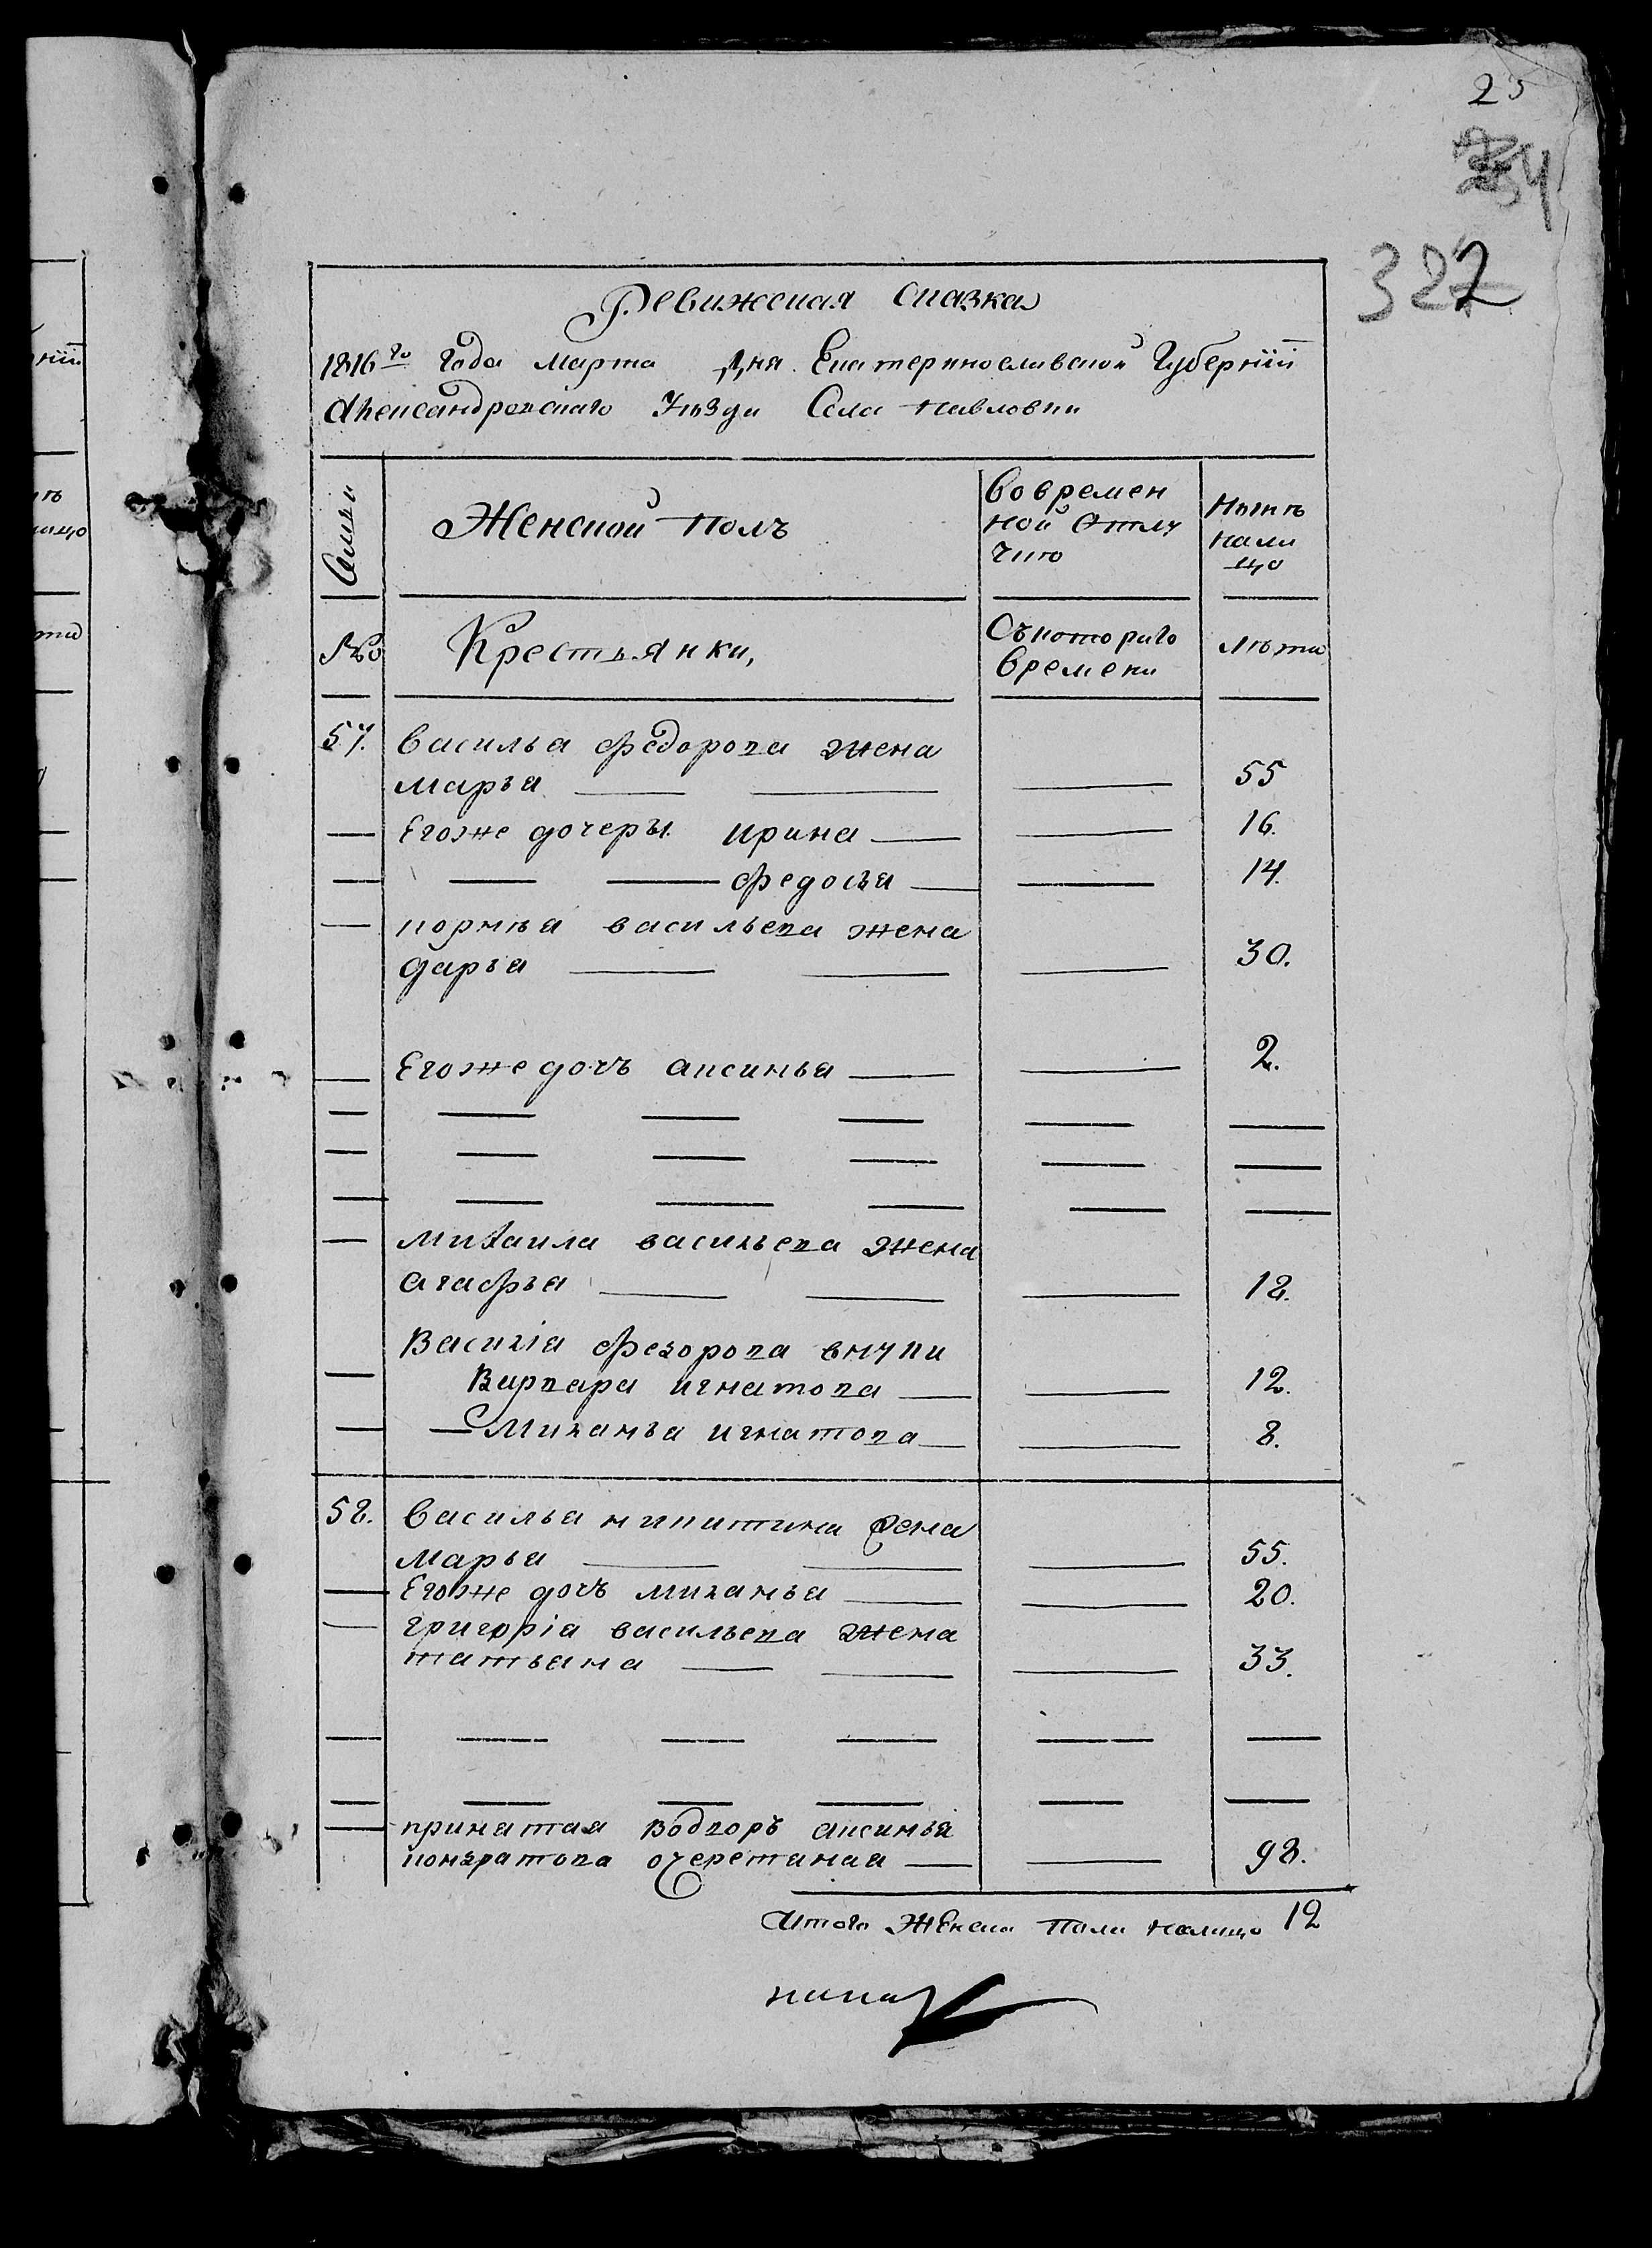 25
34
327
Ревижская Сказка
1816го Года Марта Дня Екатеринославской Губернїи
Александровскаго Уѣзда Села Павловки
Семьи
Женской Полъ
Во времен
ной Отлу
чию
Нынѣ
нали
цо
№
Крестьянки,
Съкотораго
времени
Лѣта
57. Василья Федорова жена
Марья 55
Егоже дочеры Ирина 16.
Федосья 14.
Корнѣя Васильева жена
Дарья 30.
Егоже дочъ Аксинья 2.
Михаила Васильева жена
Агафья 18.
Василїа Федорова внуки
Варвара Игнатова 12.
Миланья Игнатова 8.
58. Василья Никитина жена
Марья 55.
Егоже дочъ Миланья 20.
Григорїа Васильева жена
Татьяна 33.
принатая Водворъ Аксинья
Кондратова Очеретиная 98.
Итого Женска Пола налицо 12